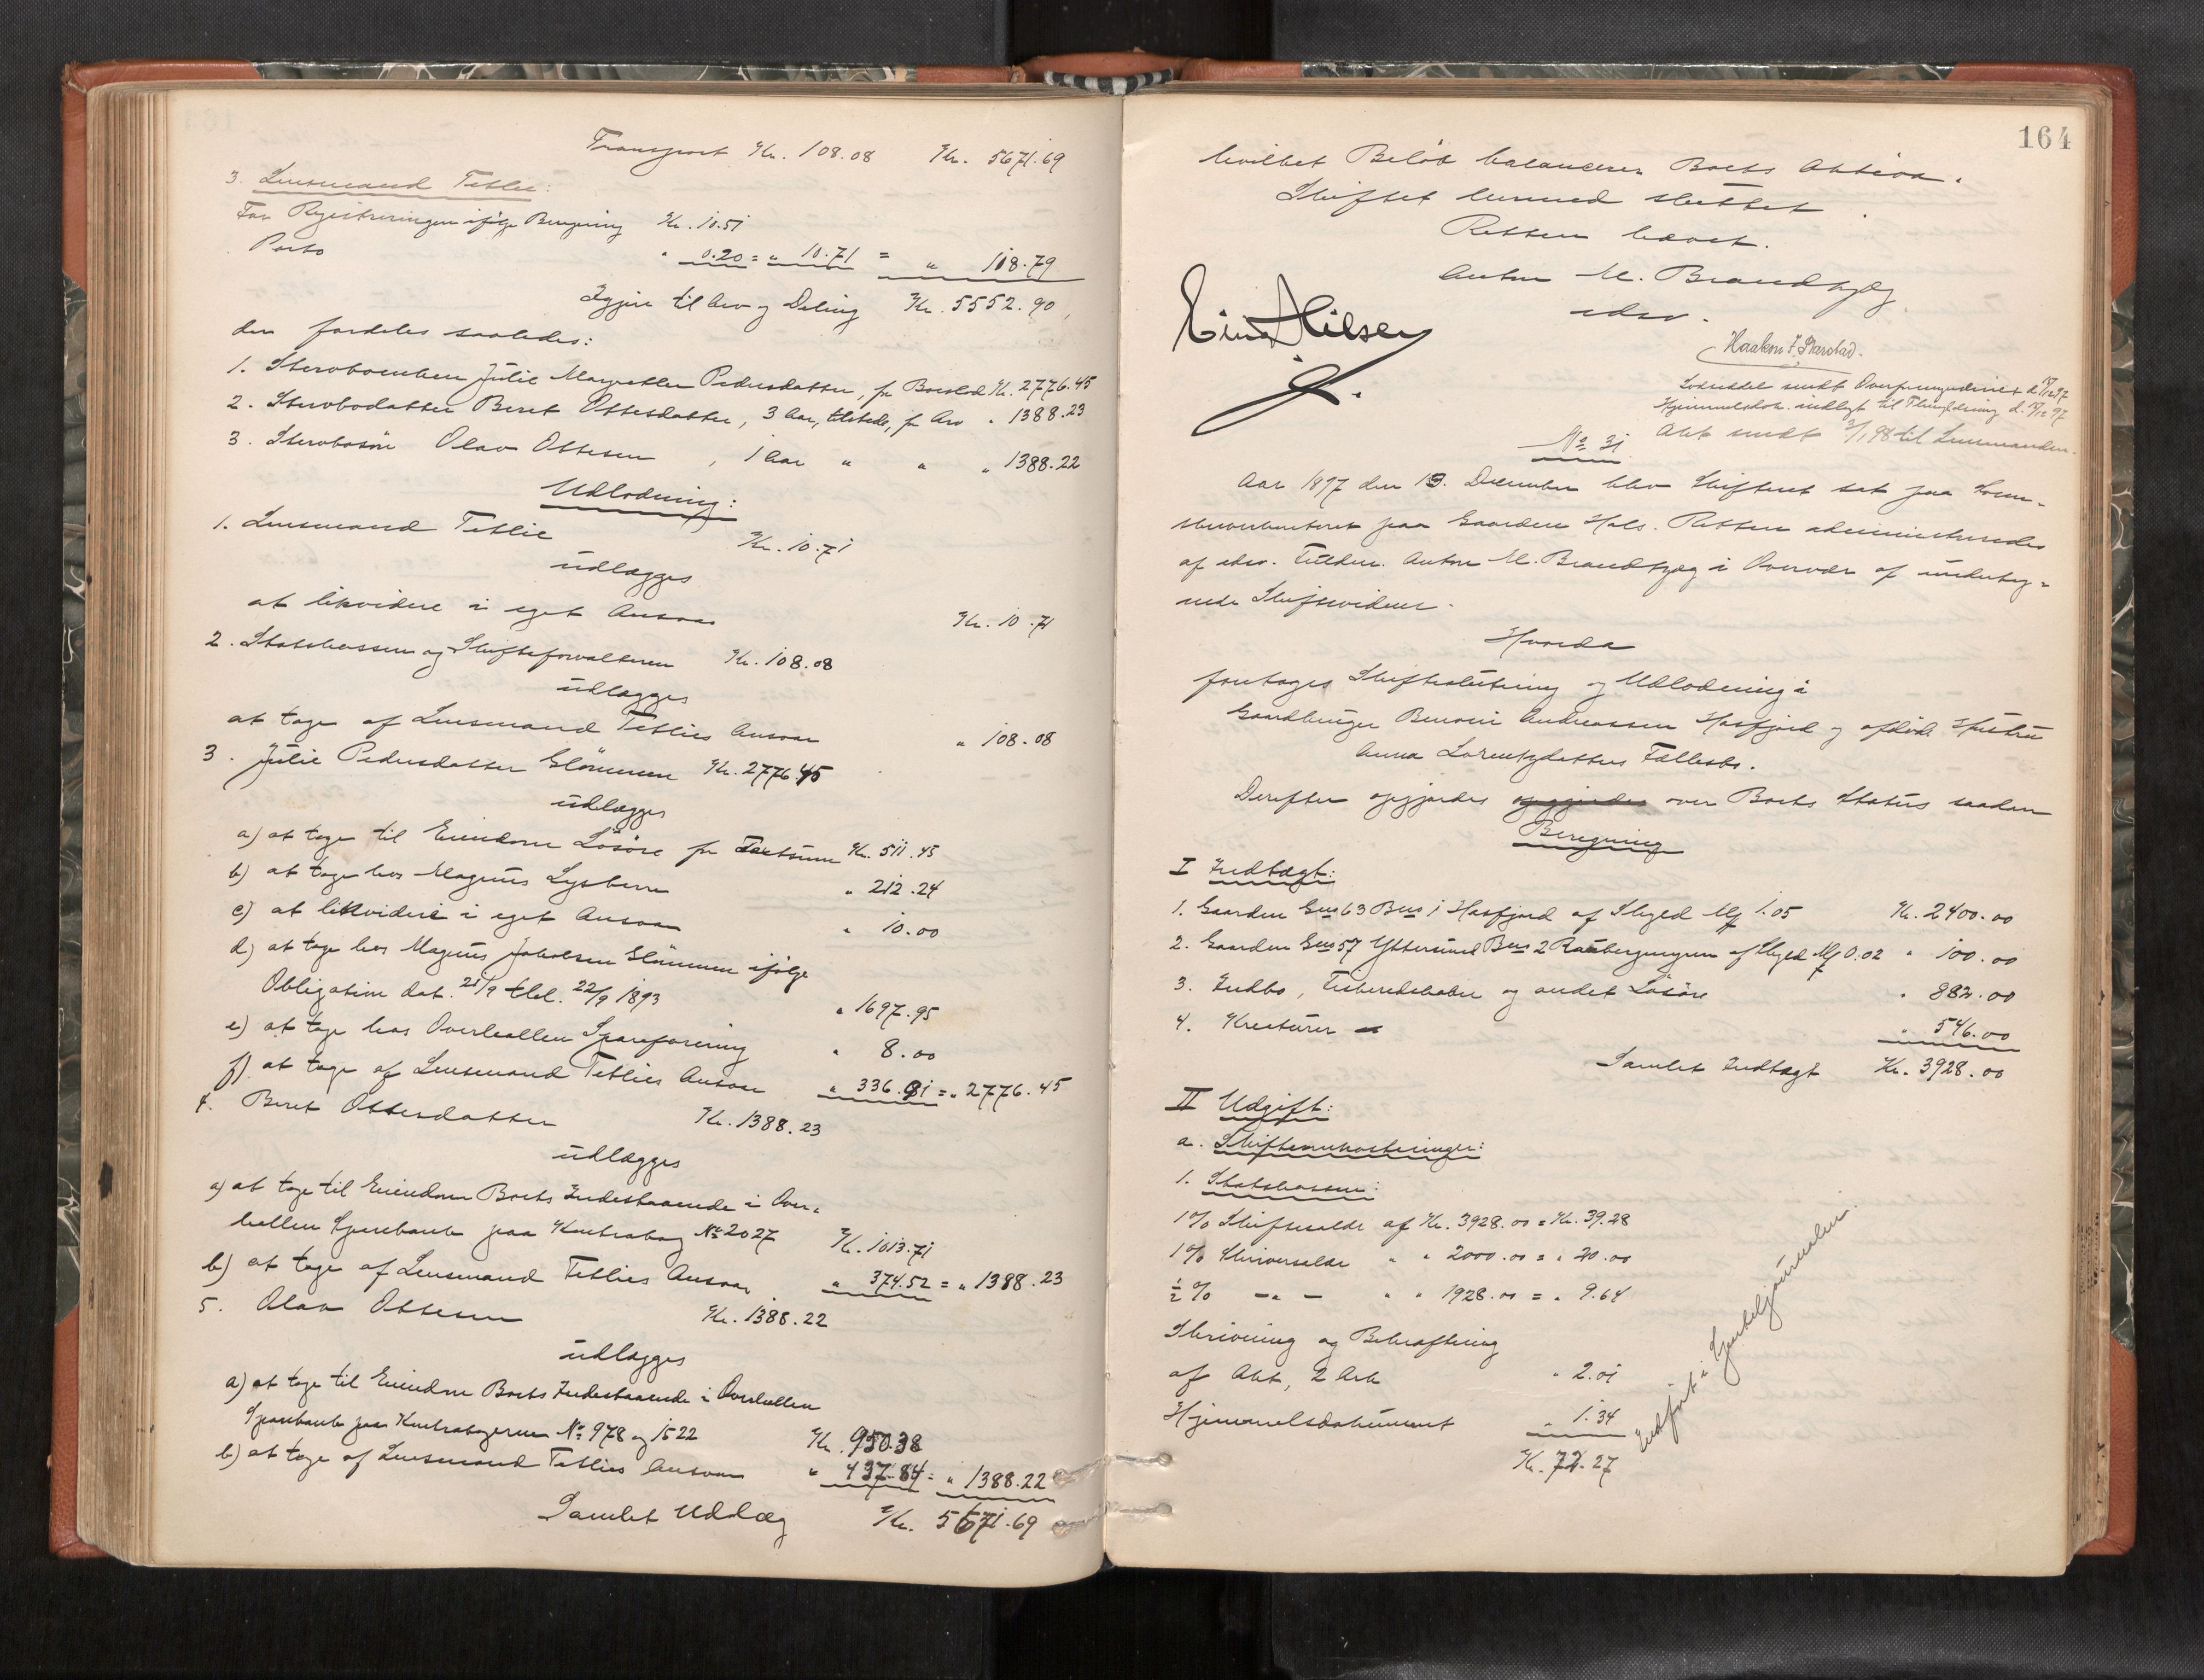 Transport Kr. 108.08 Kr. 5671.69
3. Lensmand Tetlie:
For Registreringen ifølge Beregning Kr. 10.51
Porto " 0.20 = " 10.71 = " 118.79
Igjen til Arv og Deling Kr. 5552.90,
der fordeles saaledes:
1. Stervboenken Julie Margrethe Pedersdatter, for Boeslod Kr. 2776.45
2. Stervbodatter Beret Ottesdatter, 3 Aar, tilstede, for Arv " 1388.23
3. Stervbosøn Olav Ottesen, 1 Aar " " " 1388.22
Udlodning:
1. Lensmand Tetlie Kr. 10.71
udlægges
at likvidere i eget Ansvar Kr. 10.71
2. Statskassen og Skifteforvalteren Kr. 108.08
udlægges
at tage af Lensmand Tetlies Ansvar " 108.08
3. Julie Pedersdatter Glømmen Kr. 2776.45
udlægges
a) at tage til Eiendom Løsøre for Taxtsum Kr. 511.45
b) at tage hos Magnus Lysberg " 212.24
c) at likvidere i eget Ansvar " 10.00
d) at tage hos Magnus Jakobsen Glømmen ifølge
Obligation dat. 21/9 tbl. 22/9 1893 " 1697.95
e) at tage hos Overhallens Spareforening " 8.00
f) at tage af Lensmand Tetlies Ansvar " 336.81 = " 2776.45
4. Beret Ottesdatter Kr. 1388.23
udlægges
a) at tage til Eiendom Boets Indestaaende i Over-
hallens Sparebank paa Kontrabog No 2027 Kr. 1013.71
b) at tage af Lensmand Tetlies Ansvar " 374.52 = " 1388.23
5. Olav Ottesen Kr. 1388.22
udlægges
a) at tage til Eiendom Boets Indestaaende i Overhallens
Sparebank paa Kontrabøgerne No 978 og 1522 Kr. 950.38
b) at tage af Lensmand Tetlies Ansvar " 437.84 = " 1388.22
Samlet Udlæg Kr. 5671.69
164
hvilket Beløb balancerer Boets Aktiva.
Skiftet hermed sluttet.
Retten hævet.
Anton M. Brandtzæg
edsv.
Einar Nilsen
Haakon F. Skarstad.
Lodseddel sendt Overformynderiet d. 17/12 97
Hjemmelsdok. indlagt til Thinglæsning d. 17/12 97
Akt sendt 3/1 98 til Lensmanden.
No 31
Aar 1897 den 13. December blev Skifteret sat paa Soren-
skriverkontoret paa Gaarden Hals. Retten administreredes
af edsv. Fuldm. Anton M. Brandtzæg i Overvær af underteg-
nede Skiftevidner.
Hvorda
foretoges Skifteslutning og Udlodning i
Gaardbruger Benoni Andreassen Hasfjord og afdøde Hustru
Anna Lorentzdatters Fællesbo.
Derefter opgjordes opgjordes over Boets Status saadan
Beregning
I Indtægt:
1. Gaarden Gno 63 Bno 1 Hasfjord af Skyld Mk 1.05 Kr. 2400.00
2. Gaarden Gno 57 Yttersund Bno 2 af Skyld Mk 0.02 " 100.00
3. Indbo, Fiskeredskaber og andet Løsøre " 882.00
4. Kreaturer " 546.00
Samlet Indtægt Kr. 3928.00
II Udgift:
a. Skifteomkostninger:
1. Statskassen:
1% Skiftesalær af Kr. 3928.00 = Kr. 39.28
1% Skriversalær " " 2000.00 = " 20.00
½% – " – " " 1928.00 = " 9.64
Skrivning og Bekræftning
af Akt, 2 Ark " 2.01
Hjemmelsdokument " 1.34
Kr. 72.27
Indført i Gjenheljournalen.